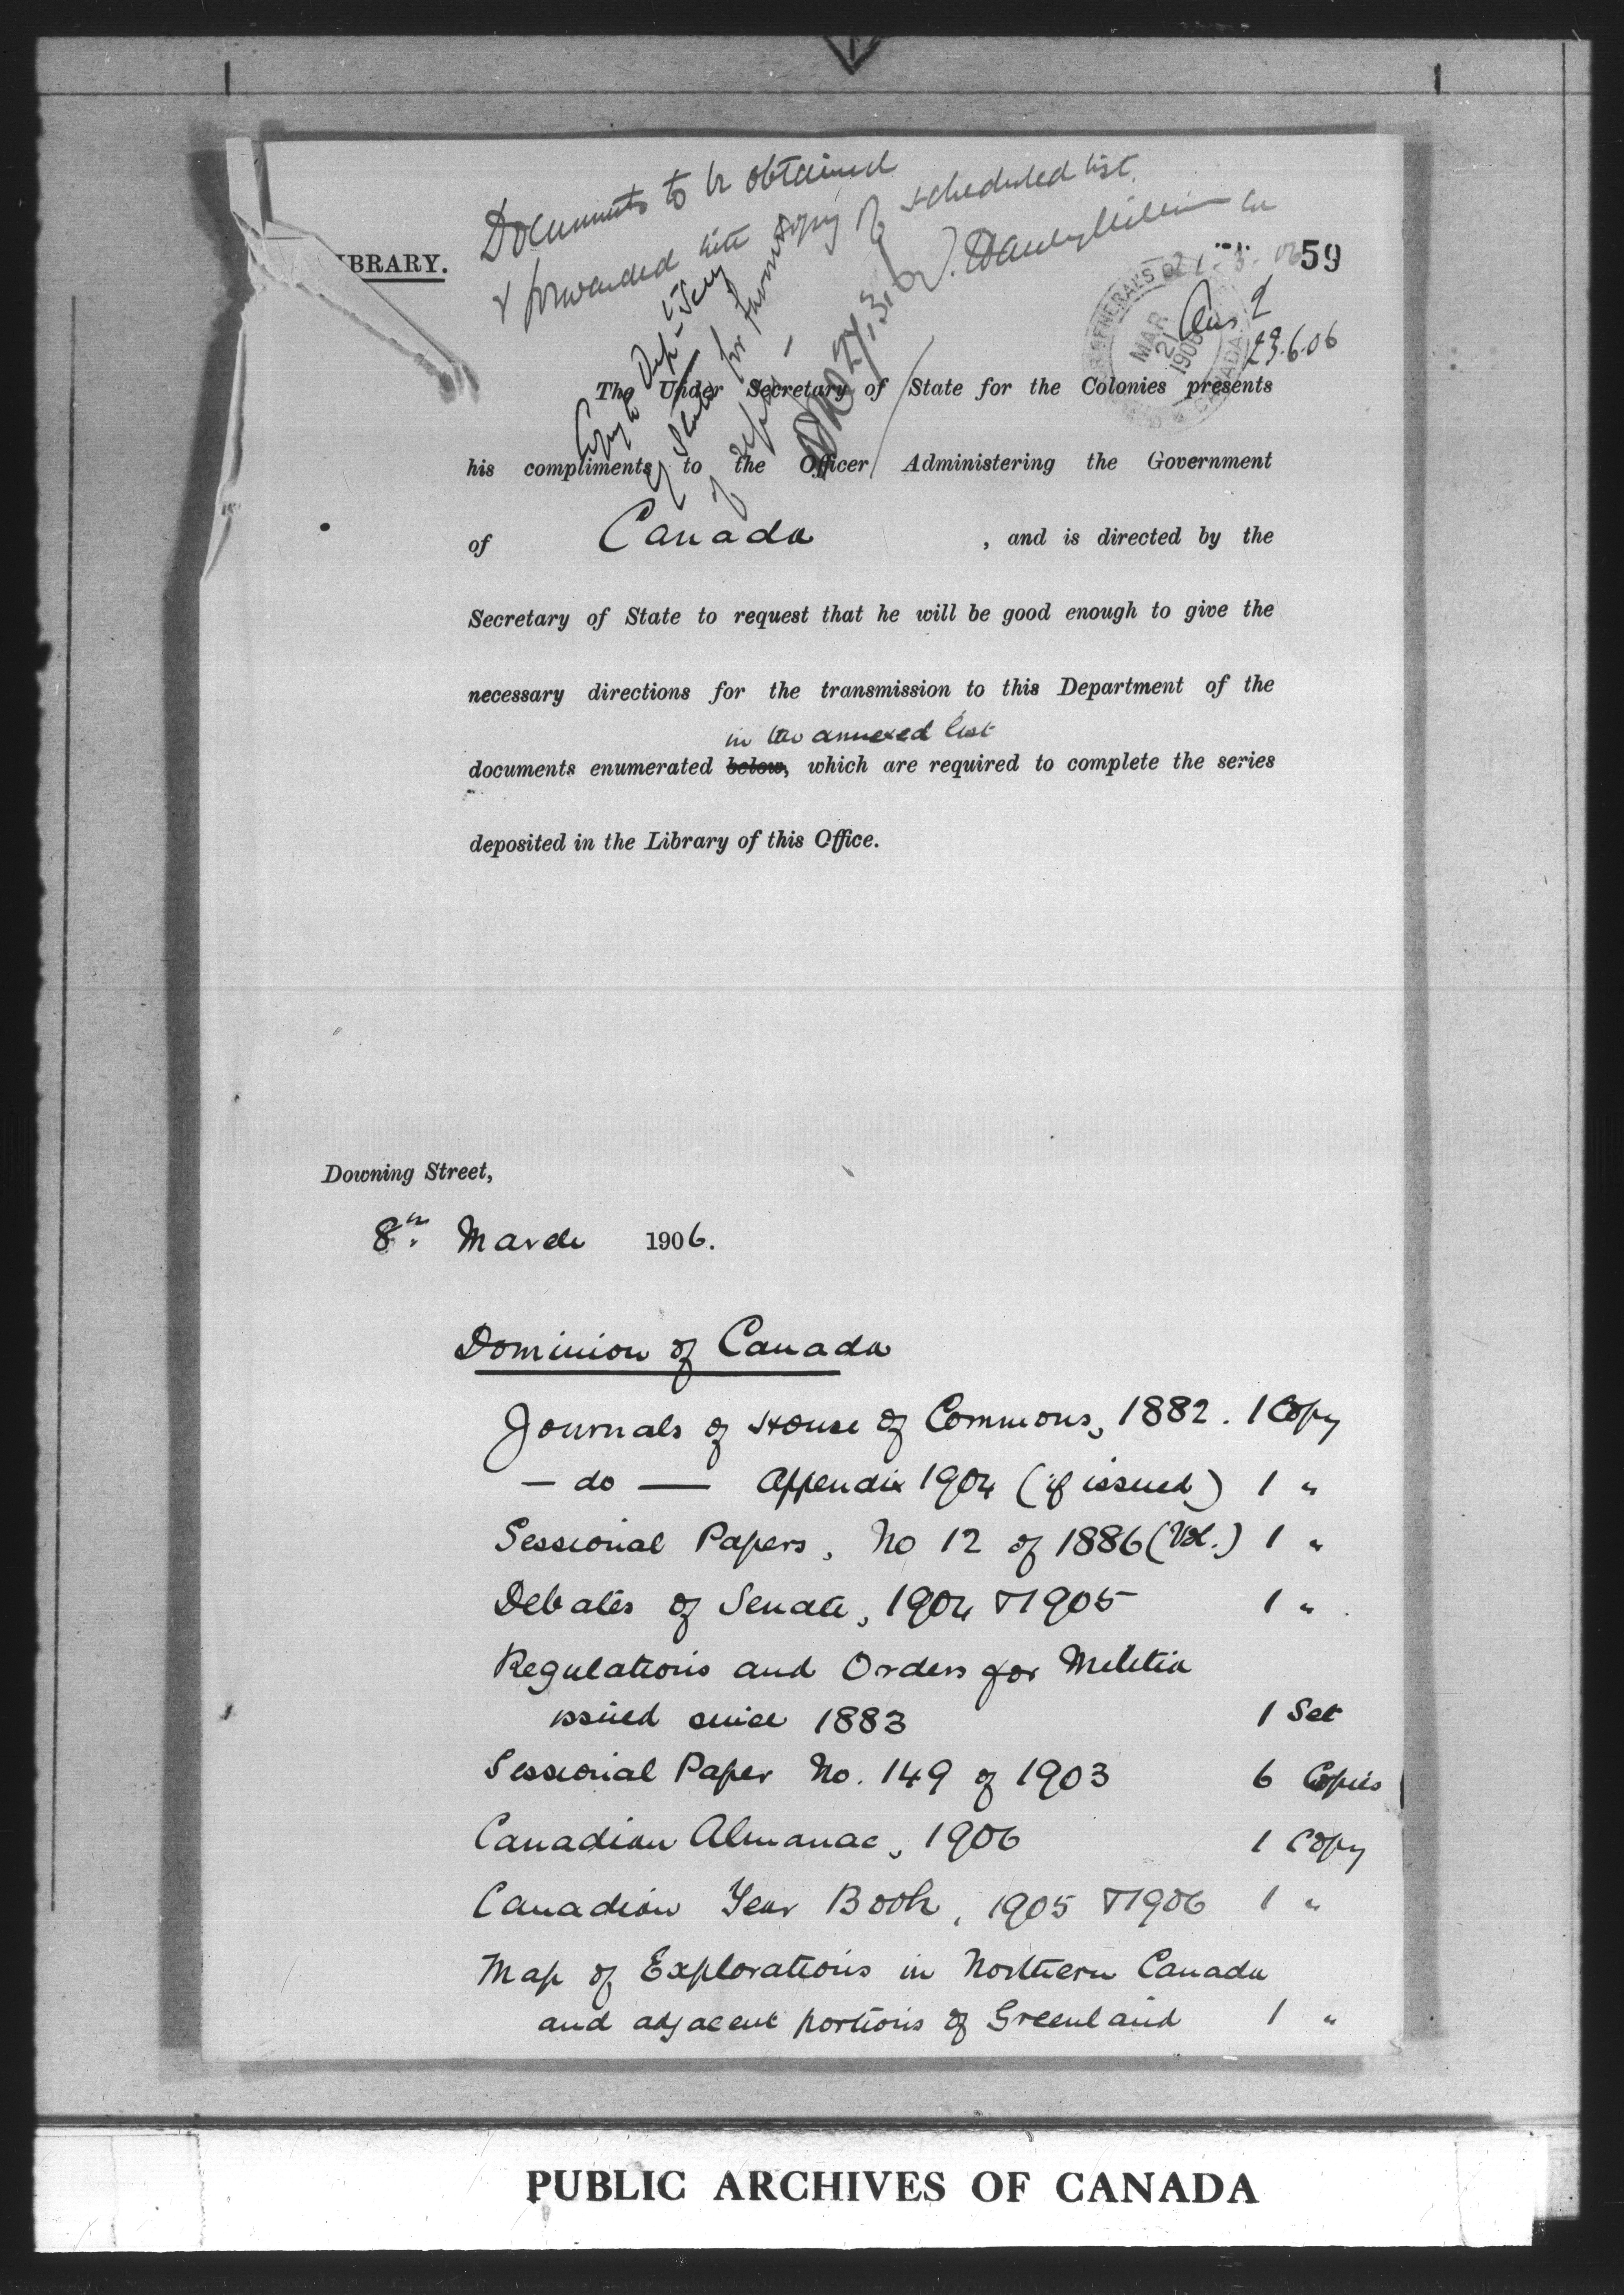 Documents to be obtained
& forwarded with copy of scheduled list.
IBRARY.
59
GENERAL'S
MAR
21
1906
CANADA
Ans 2
23.6.06
Copy to Dep. Secy
of State for
The Under Secretary of State for the Colonies presents
his compliments to the Officer Administering the Government
of Canada , and is directed by the
Secretary of State to request that he will be good enough to give the
necessary directions for the transmission to this Department of the
in the annexed list
documents enumerated below, which are required to complete the series
deposited in the Library of this Office.
Downing Street,
8th March 1906.
Dominion of Canada
Journals of House of Commons, 1882. 1 Copy
— do — Appendix 1904 (if issued) 1 "
Sessional Papers, No 12 of 1886 (Vol.) 1 "
Debates of Senate, 1904 & 1905 1 "
Regulations and Orders for Militia
issued since 1883 1 Set
Sessional Paper No. 149 of 1903 6 Copies
Canadian Almanac, 1906 1 Copy
Canadian Year Book, 1905 & 1906 1 "
Map of Explorations in Northern Canada
and adjacent portions of Greenland 1 "
PUBLIC ARCHIVES OF CANADA